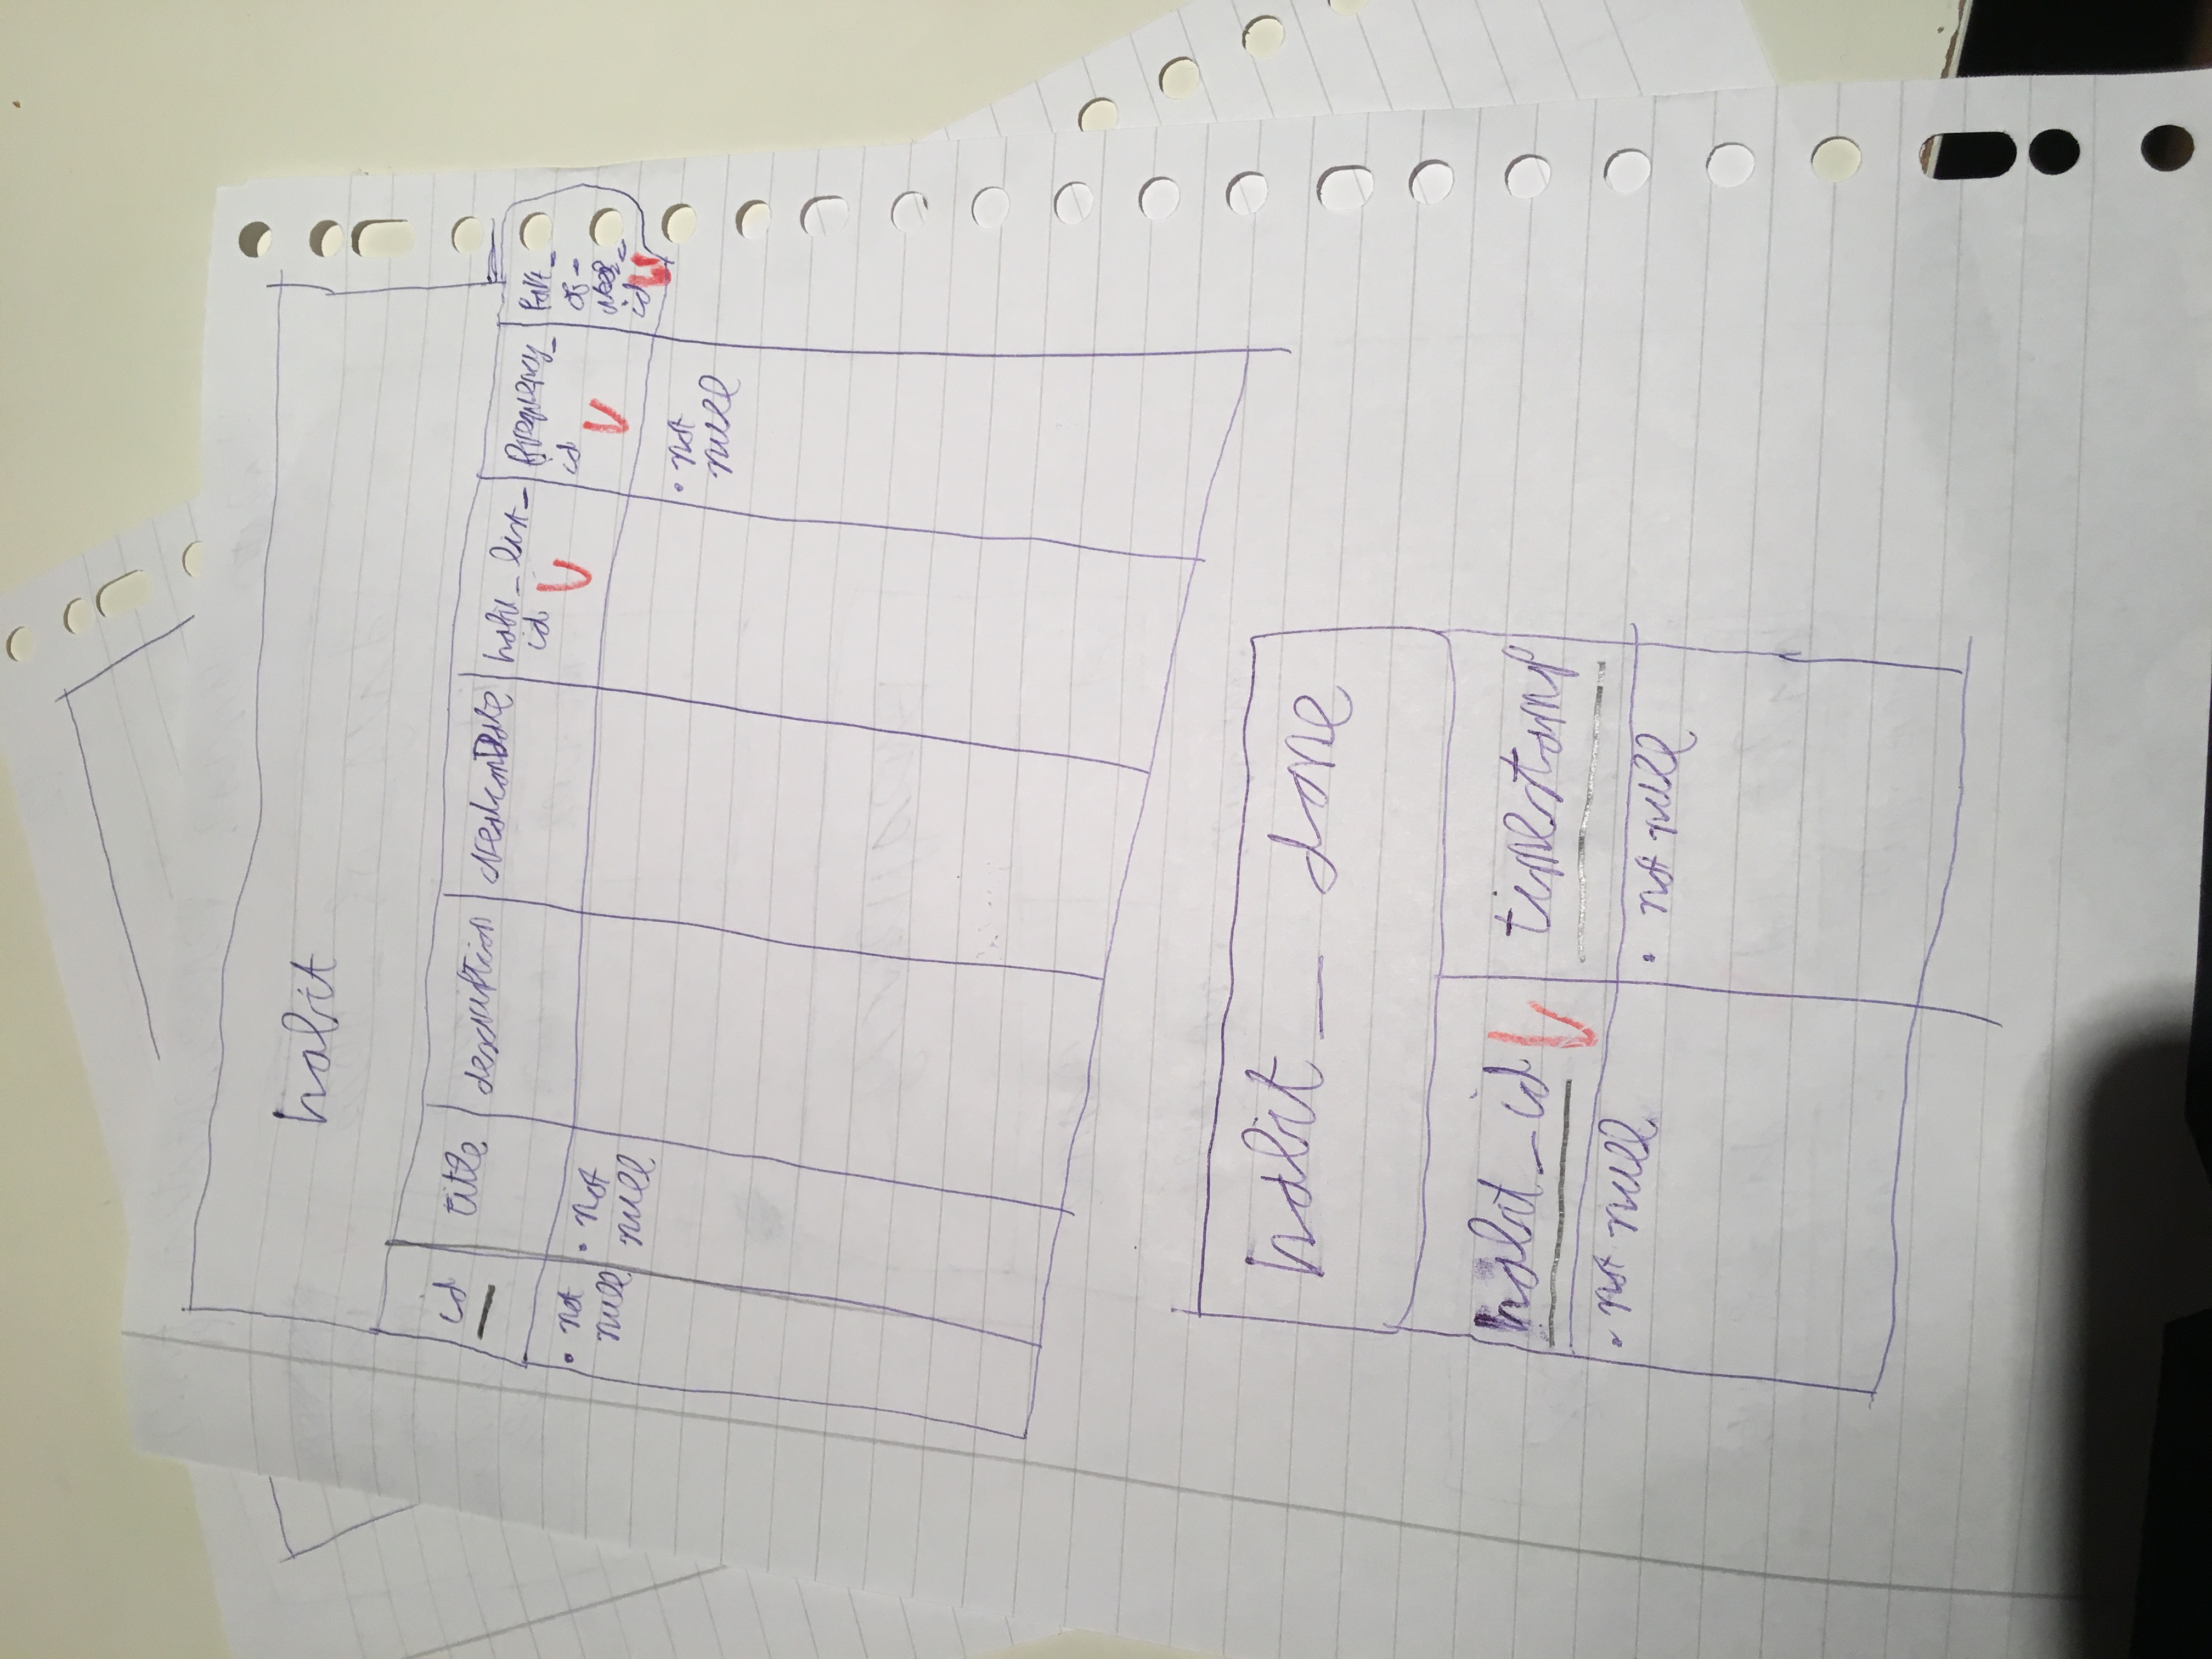 habit
id
title
description
creationDate
habit_list_
id
frequency_
id
Part_
of_
week_
id
• not
null
• not
null
• not
null
habit_ done
habit_id
timestamp
• not null
• not null